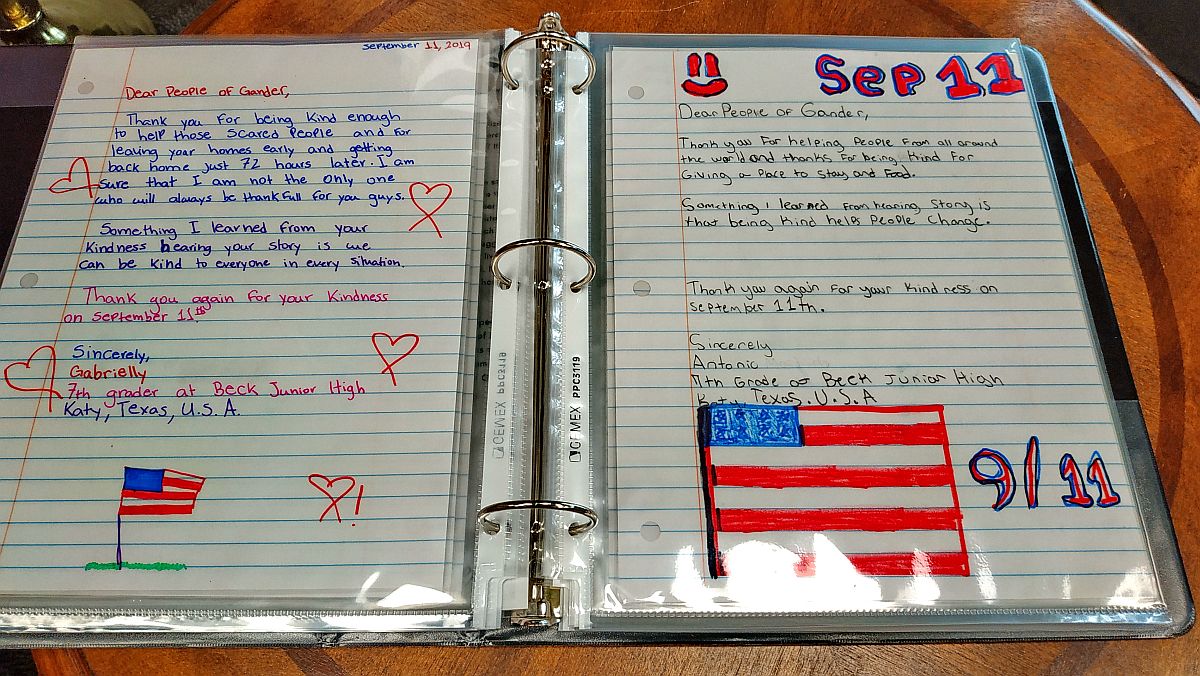 September 11, 2019
Dear People of Gander,
Thank you for being kind enough
to help those scared people and for
leaving your homes early and getting
back home just 72 hours later. I am
sure that I am not the only one
who will always be thankfull for you guys.
Something I learned from your
kindness hearing your story is we
can be kind to everyone in every situation.
Thank you again for your kindness
on September 11th.
Sincerely,
Gabrielly
7th grader at Beck Junior High
Katy, Texas, U.S.A.
!
GEMEX PPC3119
GEMEX PPC3119
Sep 11
Dear People of Gander,
Thank you for helping people from all around
the world and thanks for being kind for
Giving a place to stay and food.
Something i learned from hearing story is
that being kind helps people change.
Thank you again for your kindness on
september 11th.
Sincerely
Antonic
7th Grade of Beck Junior High
Katy, Texas, U.S.A
9/11